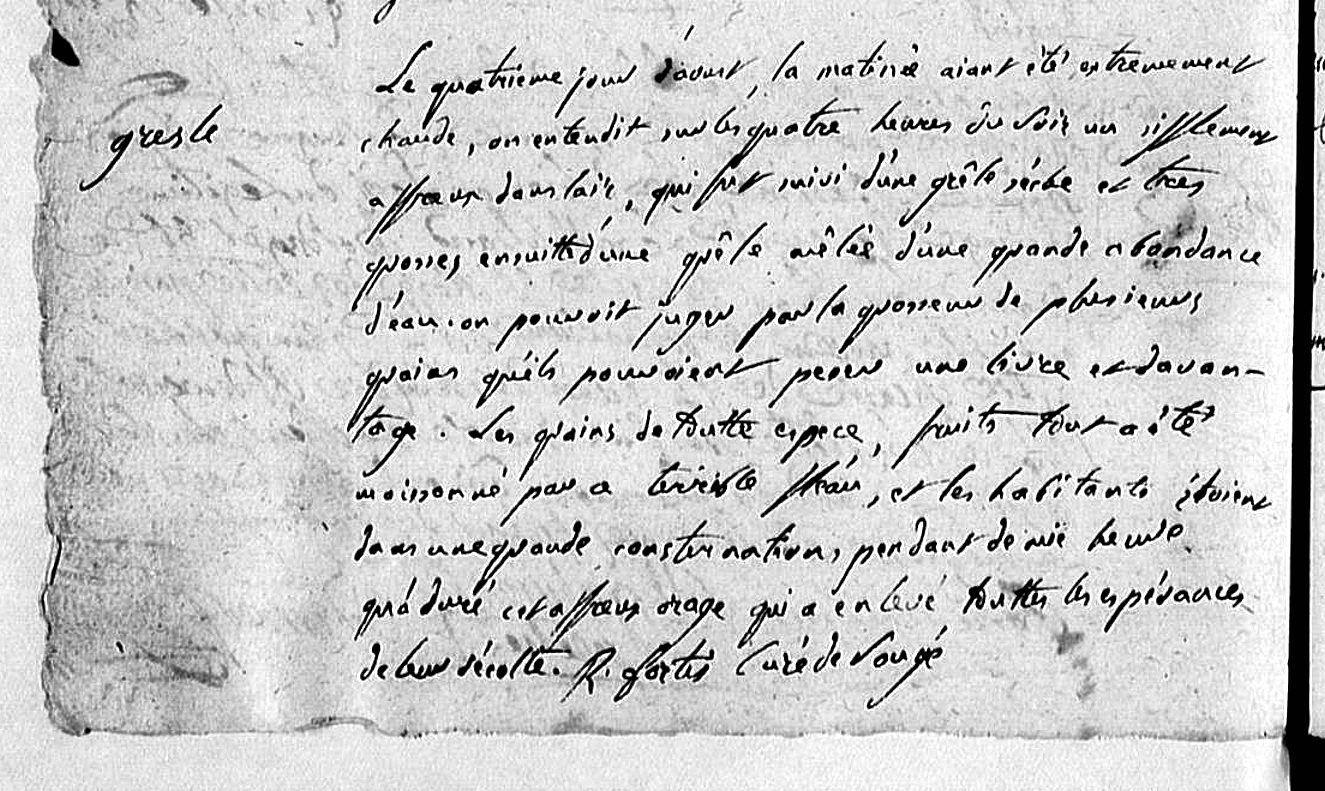 gresle
Le quatrieme jour d'aoust, la matinée aiant été extremement
chaude, on entendit sur les quatre heures du soir un sifflement
affreux dans lair, qui fut suivi d'une grêle séche et tres
grosses ensuitte d'une grêle mêlée d'une grande abondance
d'eau. on pouvoit juger par la grosseur de plusieurs
grains qu'ils pouvoient peser une livre et davan-
tage. Les grains de toutte espece, fruits tout a été
moissonné par ce terrible fléau, et les habitants étoient
dans une grande consternation, pendant demie heure
qu'a duré cet affreux orage qui a enlevé touttes les espérances
de leur récolte. R. Curé de Vougé